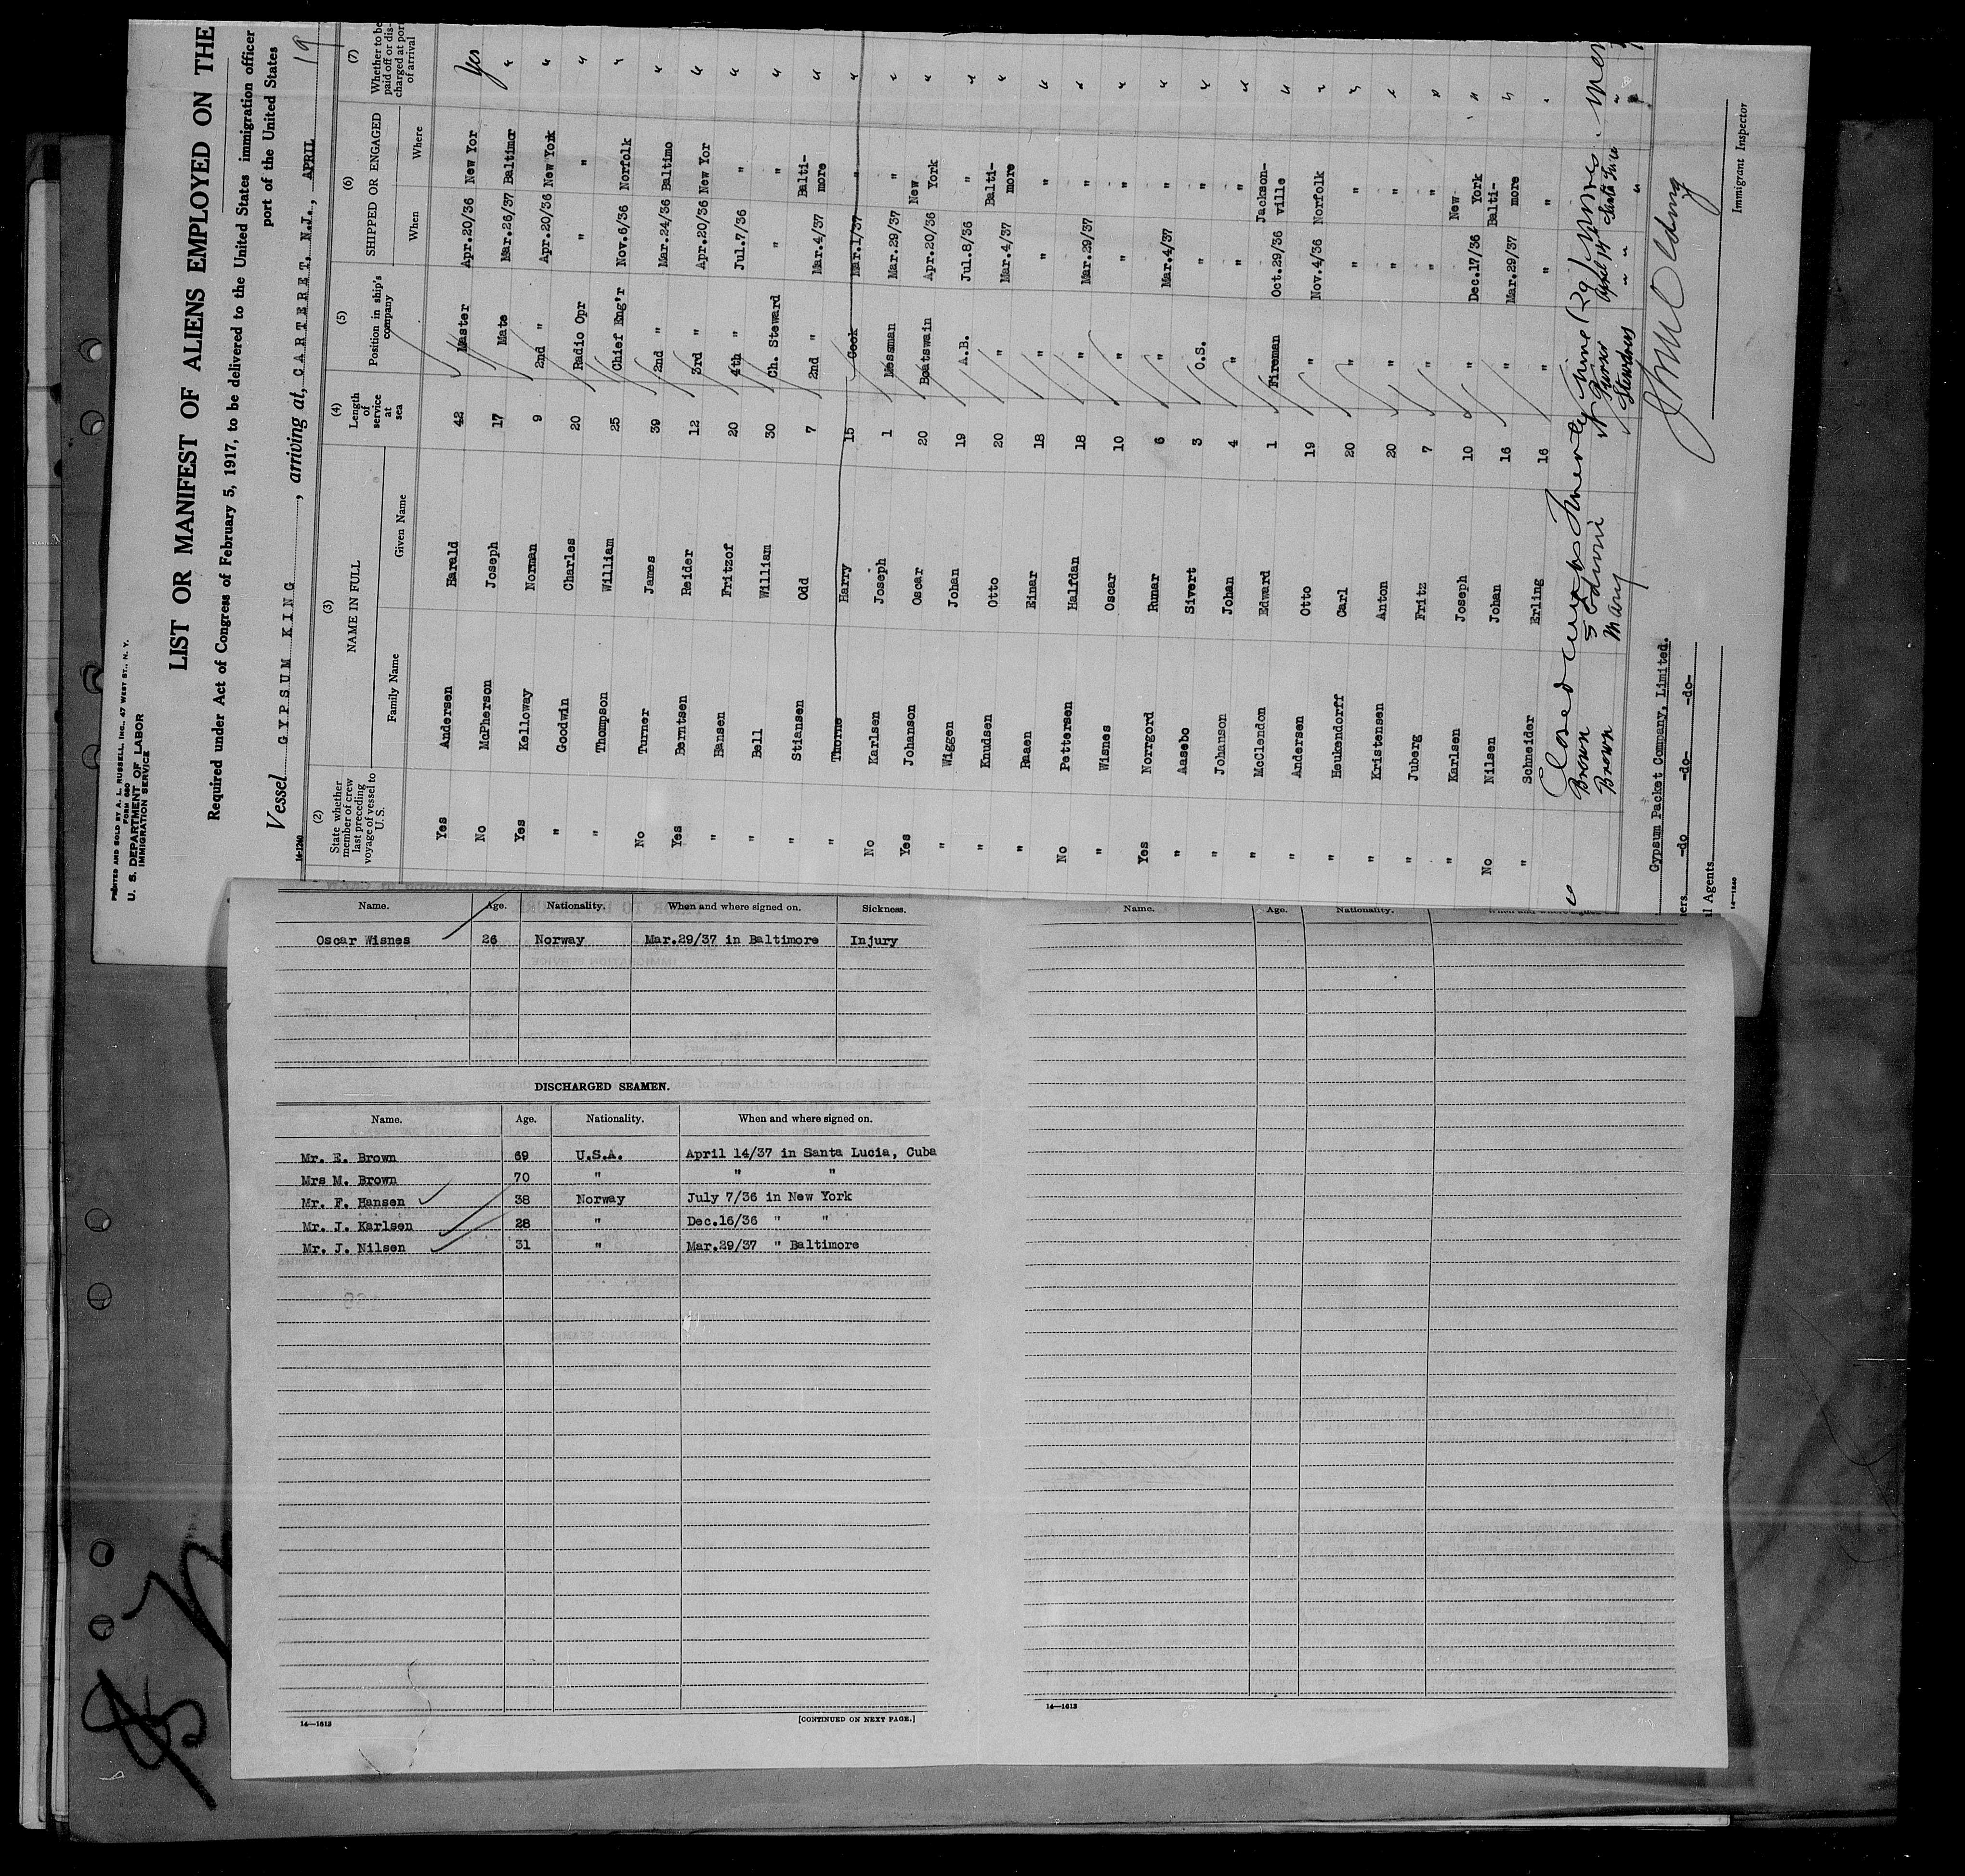 PRINTED AND SOLD BY A. L. RUSSELL, INC., 47 WEST ST., N. Y.
FORM 680
U. S. DEPARTMENT OF LABOR
IMMIGRATION SERVICE
LIST OR MANIFEST OF ALIENS EMPLOYED ON THE
Required under Act of Congress of February 5, 1917, to be delivered to the United States immigration officer
port of the United States
Vessel GYPSUM KING, arriving at, CARTERET, N.J., APRIL 19
14-1240
(2) (3) (4) (5) (6) (7)
State whether member of crew last preceding voyage of vessel to U.S.
NAME IN FULL
Family Name Given Name
Length of service at sea
Position in ship's company
SHIPPED OR ENGAGED
When Where
Whether to be paid off or discharged at port of arrival
Yes Andersen Harald 42 Master Apr.20/36 New Yor Yes
No McPherson Joseph 17 Mate Mar.26/37 Baltimor "
Yes Kelloway Norman 9 2nd " Apr.20/36 New York "
" Goodwin Charles 20 Radio Opr " " "
" Thompson William 25 Chief Eng'r Nov.6/36 Norfolk "
No Turner James 39 2nd " Mar.24/36 Baltimo "
Yes Berntsen Reider 12 3rd " Apr.20/36 New Yor "
" Hansen Fritzof 20 4th " Jul.7/36 " "
" Bell William 30 Ch. Steward " " "
" Stiansen Odd 7 2nd " Mar.4/37 Baltimore "
" Thorne Harry 15 Cook Mar.1/37 " "
No Karlsen Joseph 1 Messman Mar.29/37 " "
Yes Johanson Oscar 20 Boatswain Apr.20/36 New York "
" Wiggen Johan 19 A.B. Jul.8/36 " "
" Knudsen Otto 20 " Mar.4/37 Baltimore "
" Raaen Einar 18 " " " "
No Pettersen Halfdan 18 " Mar.29/37 " "
" Wisnes Oscar 10 " " " "
Yes Norrgord Runar 6 " Mar.4/37 " "
" Aasebo Sivert 3 O.S. " " "
" Johanson Johan 4 " " " "
" McClendon Edward 1 Fireman Oct.29/36 Jacksonville "
" Andersen Otto 19 " Nov.4/36 Norfolk "
" Heukendorff Carl 20 " " " "
" Kristensen Anton 20 " " " "
" Juberg Fritz 7 " " " "
" Karlsen Joseph 10 " Dec.17/36 New York "
No Nilsen Johan 16 " Mar.29/37 Baltimore "
" Schneider Erling 16 " " " "
Closed Twenty nine (29)
Brown Edwin Purser April 14th
Brown Mary Stewardess " "
Gypsum Packet Company, Limited.
-do -do- -do-
Immigrant Inspector
14-1240
Name. Age. Nationality. When and where signed on. Sickness.
Oscar Wisnes 26 Norway Mar.29/37 in Baltimore Injury
DISCHARGED SEAMEN.
Name. Age. Nationality. When and where signed on.
Mr. E. Brown 69 U.S.A. April 14/37 in Santa Lucia, Cuba
Mrs M. Brown 70 " " "
Mr. F. Hansen 38 Norway July 7/36 in New York
Mr. J. Karlsen 28 " Dec.16/36 " "
Mr. J. Nilsen 31 " Mar.29/37 " Baltimore
14—1613
[CONTINUED ON NEXT PAGE.]
Name. Age. Nationality.
14—1613